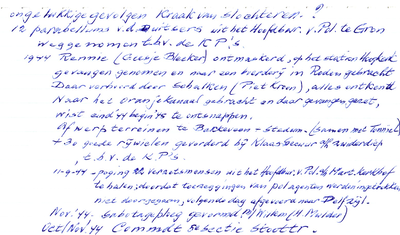 ongelukkige gevolgen Kraak van Slochteren. ?
12 parabellums v.d. Duitsers uit het Hoofdbur. v. Pol. te Gron
weggenomen t.b.v. de K P's.
1944 Rennie (Geesje Bleeker) ontmaskerd, op het station Hoofkerk
gevangen genomen en naar een boerderij in Roden gebracht
Daar verhoord door Schalken (Piet Kron), alles ontkend
Naar het Oranjekanaal gebracht en daar gevangen gezet,
wist eind 44 begin 45 te ontsnappen.
Afwerpterreinen te Bakkeveen - Stedum. (samen met Tonnis)
+ 30 goede rijwielen gevorderd bij Klaas
t.b.v. de K.P's.
11-9-44 - poging verzetsmensen uit het Hoofdbur. v Pol.
te halen; doordat toezeggingen van pol agenten werden ingetrokken
niet doorgegaan, volgende dag afgevoerd naar Delfzijl.
Nov. '44. Sabotageploeg gevormd Willem (H. Mulder)
Oct/Nov. '44 Commdt selectie stoottr.